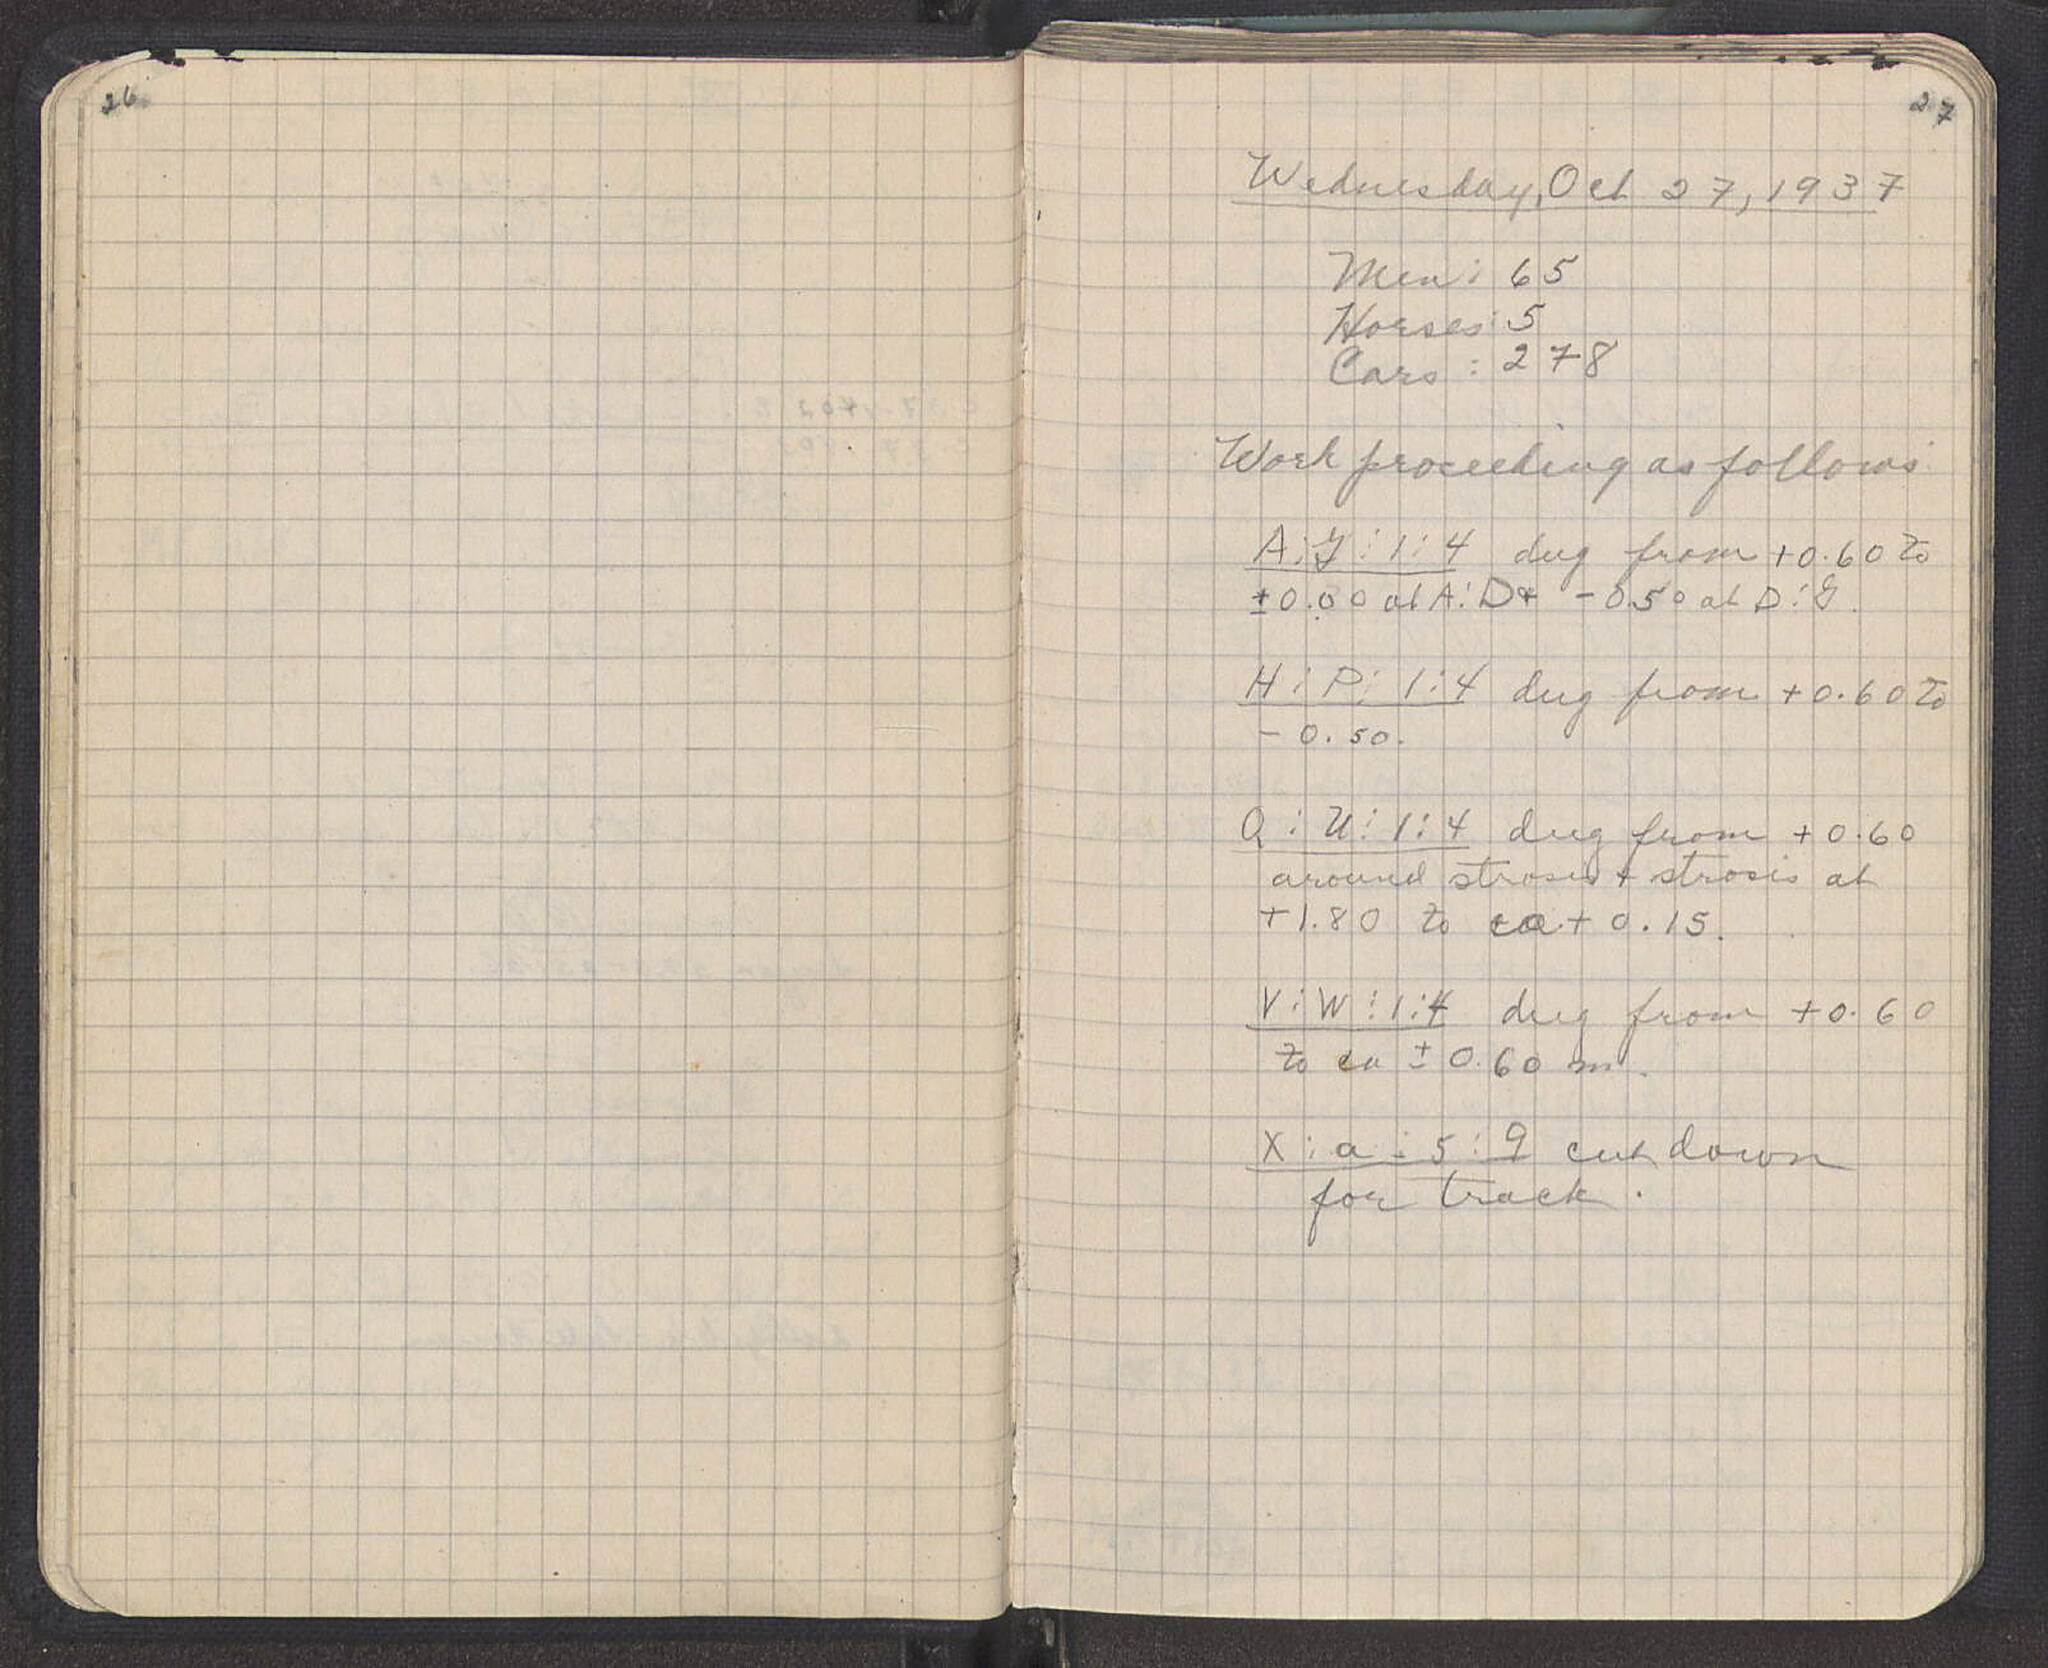 26
27
Wednesday, Oct 27, 1937
Men: 65
Horses: 5
Cars: 278
Work proceeding as follows
A:G:1:4 dug from +0.60 to
±0.00 at A:D + -0.50 at D:G.
H:P:1:4 dug from +0.60 to
-0.50.
Q:U:1:4 dug from +0.60
around strosis + strosis at
+1.80 to ca + 0.15.
V:W:1:4 dug from +0.60
to ca ±0.60 m.
X:a:5:9 cut down
for track.